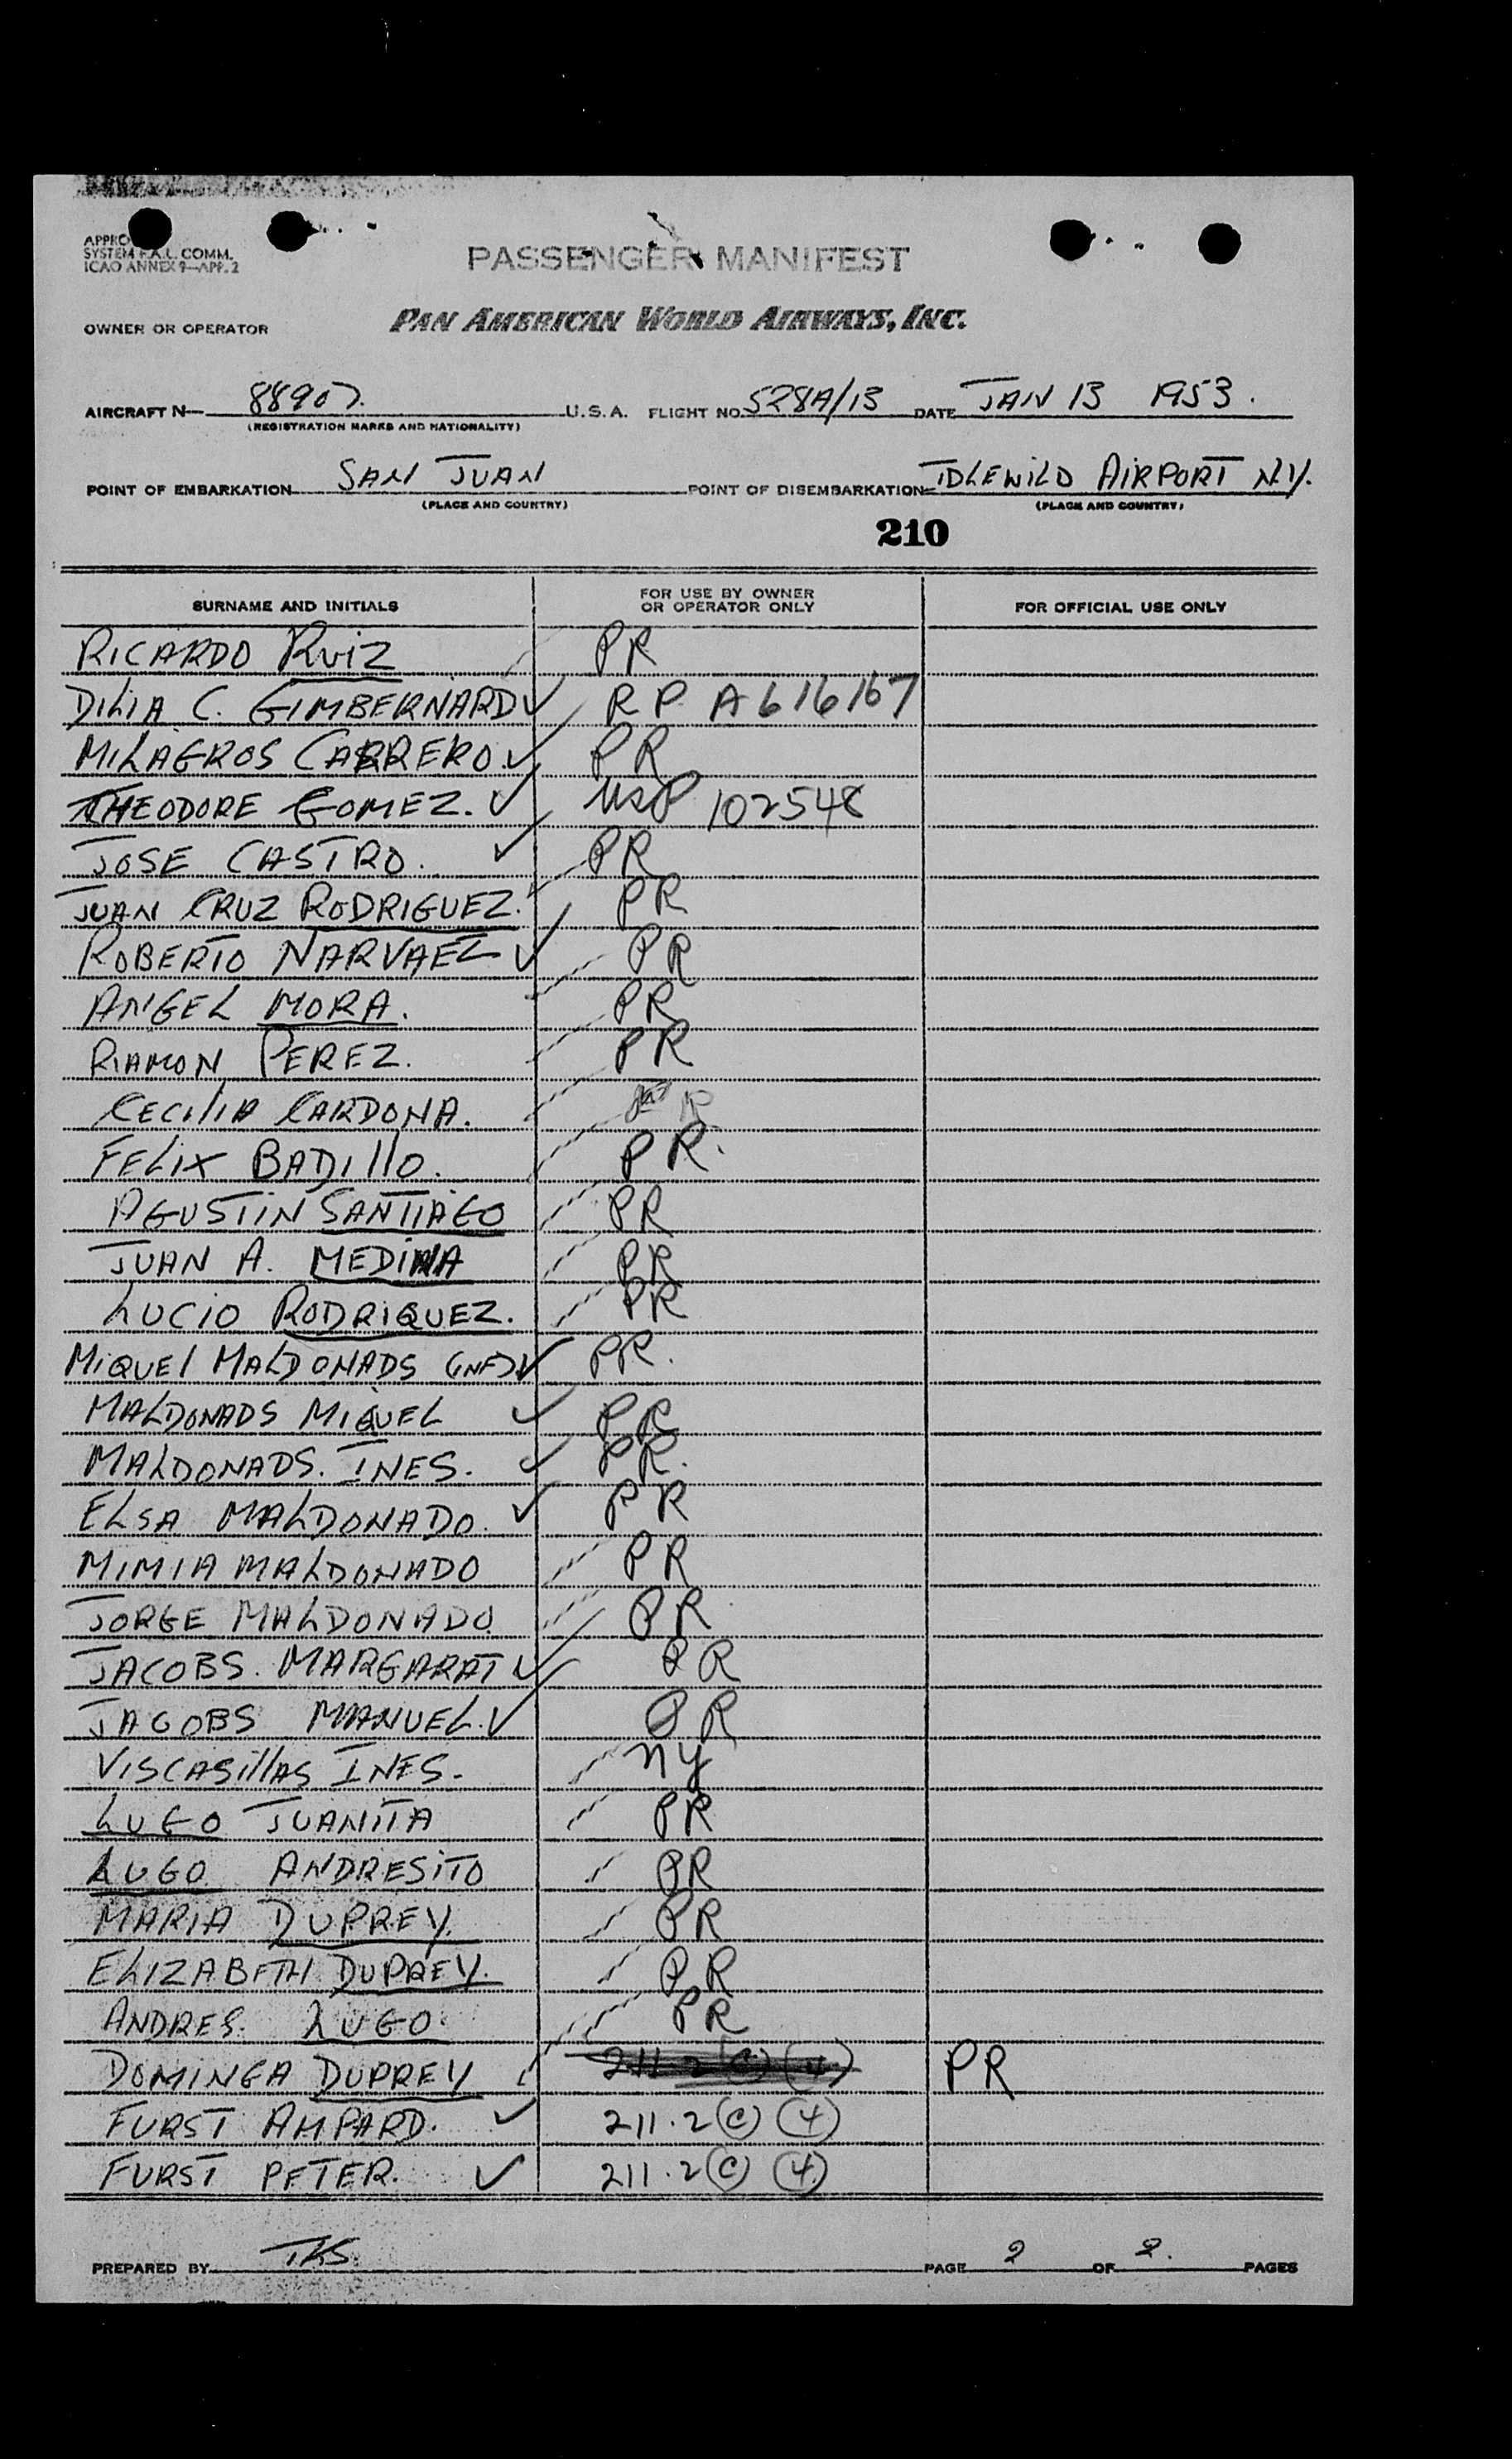 SYSTEM F.A.L. COMM.
ICAO ANNEX 9—APP. 2
PASSENGER MANIFEST
OWNER OR OPERATOR PAN AMERICAN WORLD AIRWAYS, INC.
AIRCRAFT N— 88907. U.S.A. FLIGHT NO. 528A/13 DATE JAN 13 1953.
(REGISTRATION MARKS AND NATIONALITY)
POINT OF EMBARKATION SAN JUAN POINT OF DISEMBARKATION IDLEWILD AIRPORT N.Y.
(PLACE AND COUNTRY) (PLACE AND COUNTRY)
210
SURNAME AND INITIALS FOR USE BY OWNER OR OPERATOR ONLY FOR OFFICIAL USE ONLY
RICARDO RUIZ PR
DILIA C. GIMBERNARD ✓ RP A616167
MILAGROS CARRERO. ✓ PR
THEODORE GOMEZ. ✓ USP 102548
JOSE CASTRO. ✓ PR
JUAN CRUZ RODRIGUEZ. PR
ROBERTO NARVAEZ ✓ PR
ANGEL MORA. PR
RAMON PEREZ. PR
CECILIA CARDONA. PR
FELIX BADILLO. PR.
AGUSTIN SANTIAGO PR
JUAN A. MEDINA PR
LUCIO RODRIQUEZ. PR
MIQUEL MALDONADS (INF) ✓ PR.
MALDONADS MIQUEL ✓ PR
MALDONADS. INES. ✓ PR.
ELSA MALDONADO. ✓ PR
MIMIA MALDONADO PR
JORGE MALDONADO. PR
JACOBS. MARGARAT ✓ PR
JACOBS MANUEL. ✓ PR
VISCASILLAS INES. NY
LUGO JUANITA PR
LUGO ANDRESITO PR
MARIA DUPREY. PR
ELIZABETH DUPREY. PR
ANDRES. LUGO. PR
DOMINGA DUPREY 211.2 (C) (4) PR
FURST AMPARD. ✓ 211.2 (C) (4)
FURST PETER. ✓ 211.2 (C) (4)
PREPARED BY TKS. PAGE 2 OF 2. PAGES